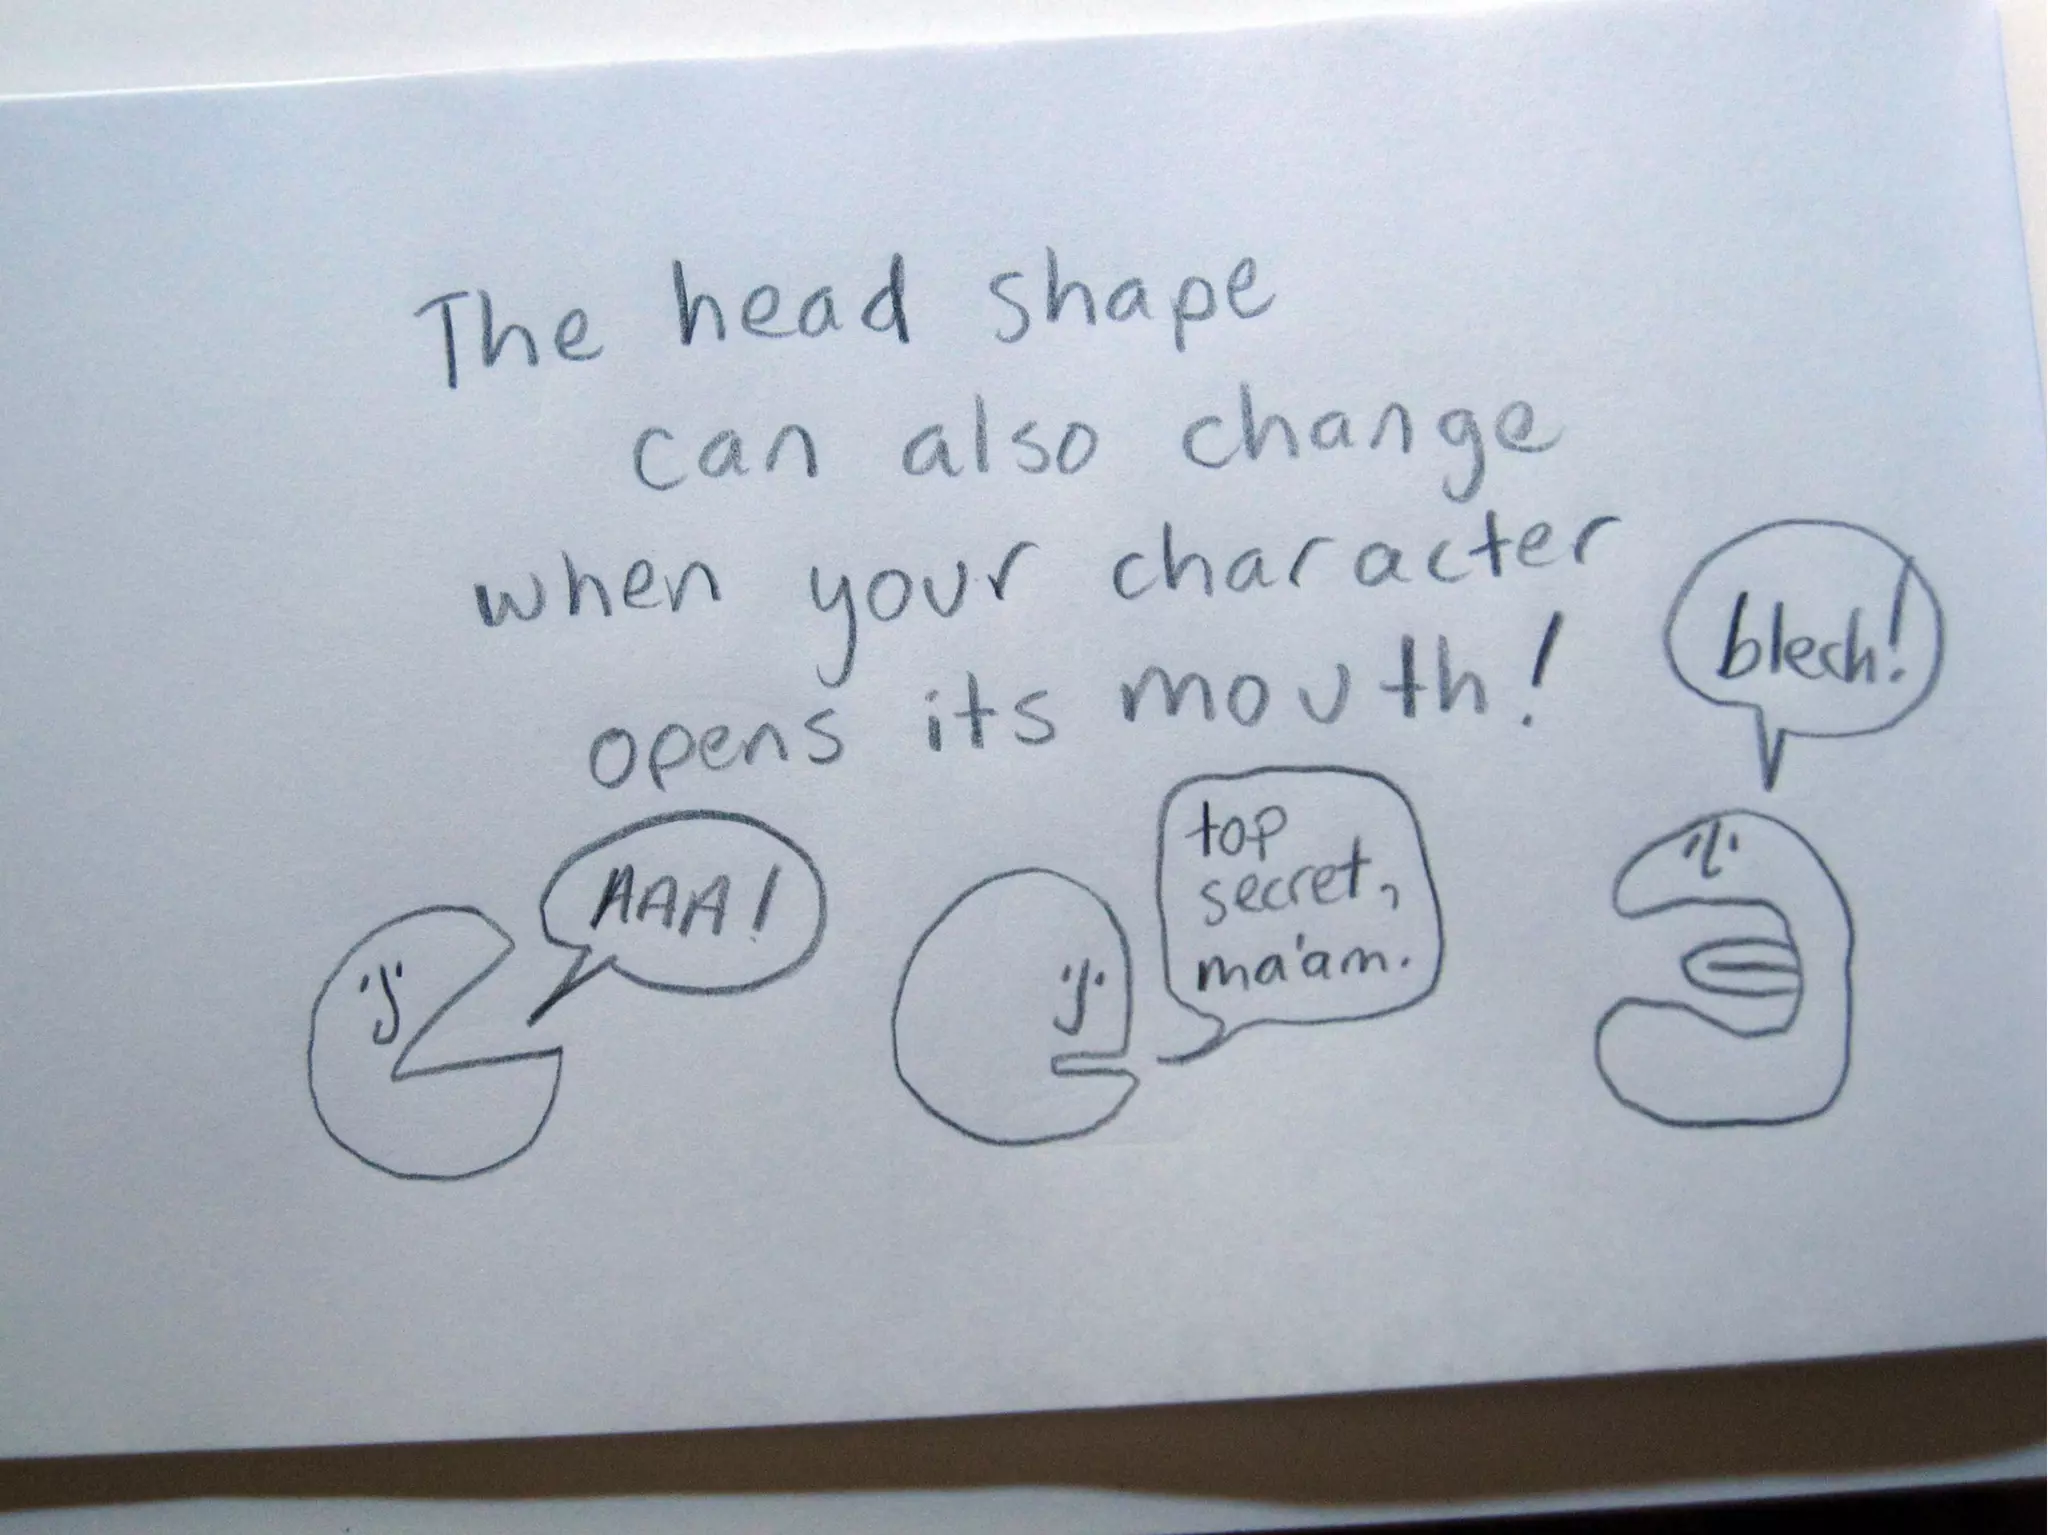 The head shape
can also change
when your character
opens its mouth!
AAA!
top
secret,
ma'am.
blech!